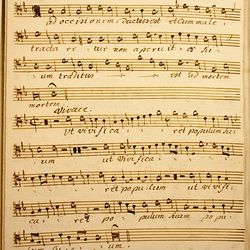 Ad occisionem ductus est et cum male
tracta re tur non aperuit os su
um traditus est ad mortem
mortem
Vivace.
ut vivifica ret populum su
um ut Vivifica
ret populum ut vivifi
ca ret po pulum suum popu
lum su um.